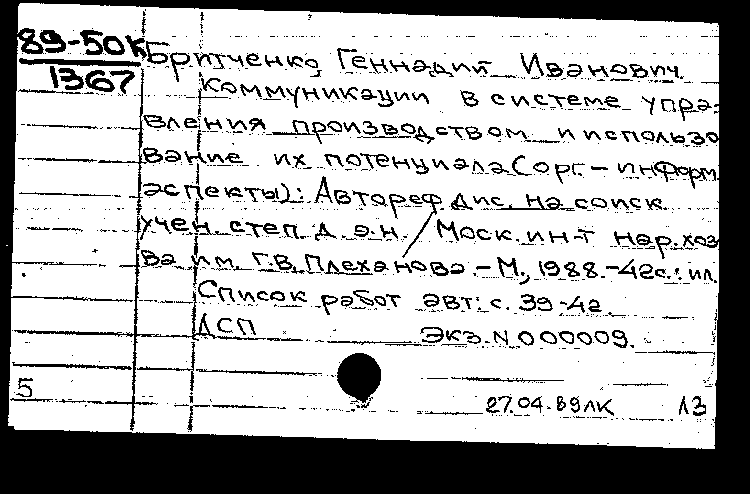 89-50к Бритченко, Геннадий Иванович.
1367
Коммуникации в системе упра-
вления производством и использо
вание их потенциала (орг.-информ.
аспекты): Автореф. дис. на соиск.
учен. степ. д. э. н. / Моск. ин-т нар. хоз
ва им. Г.В. Плеханова. - М., 1988. - 42с.: ил.
Список работ авт.: с. 39-42.
ДСП Экз. N 000009.
5
27.04.89ЛК ЛЗ